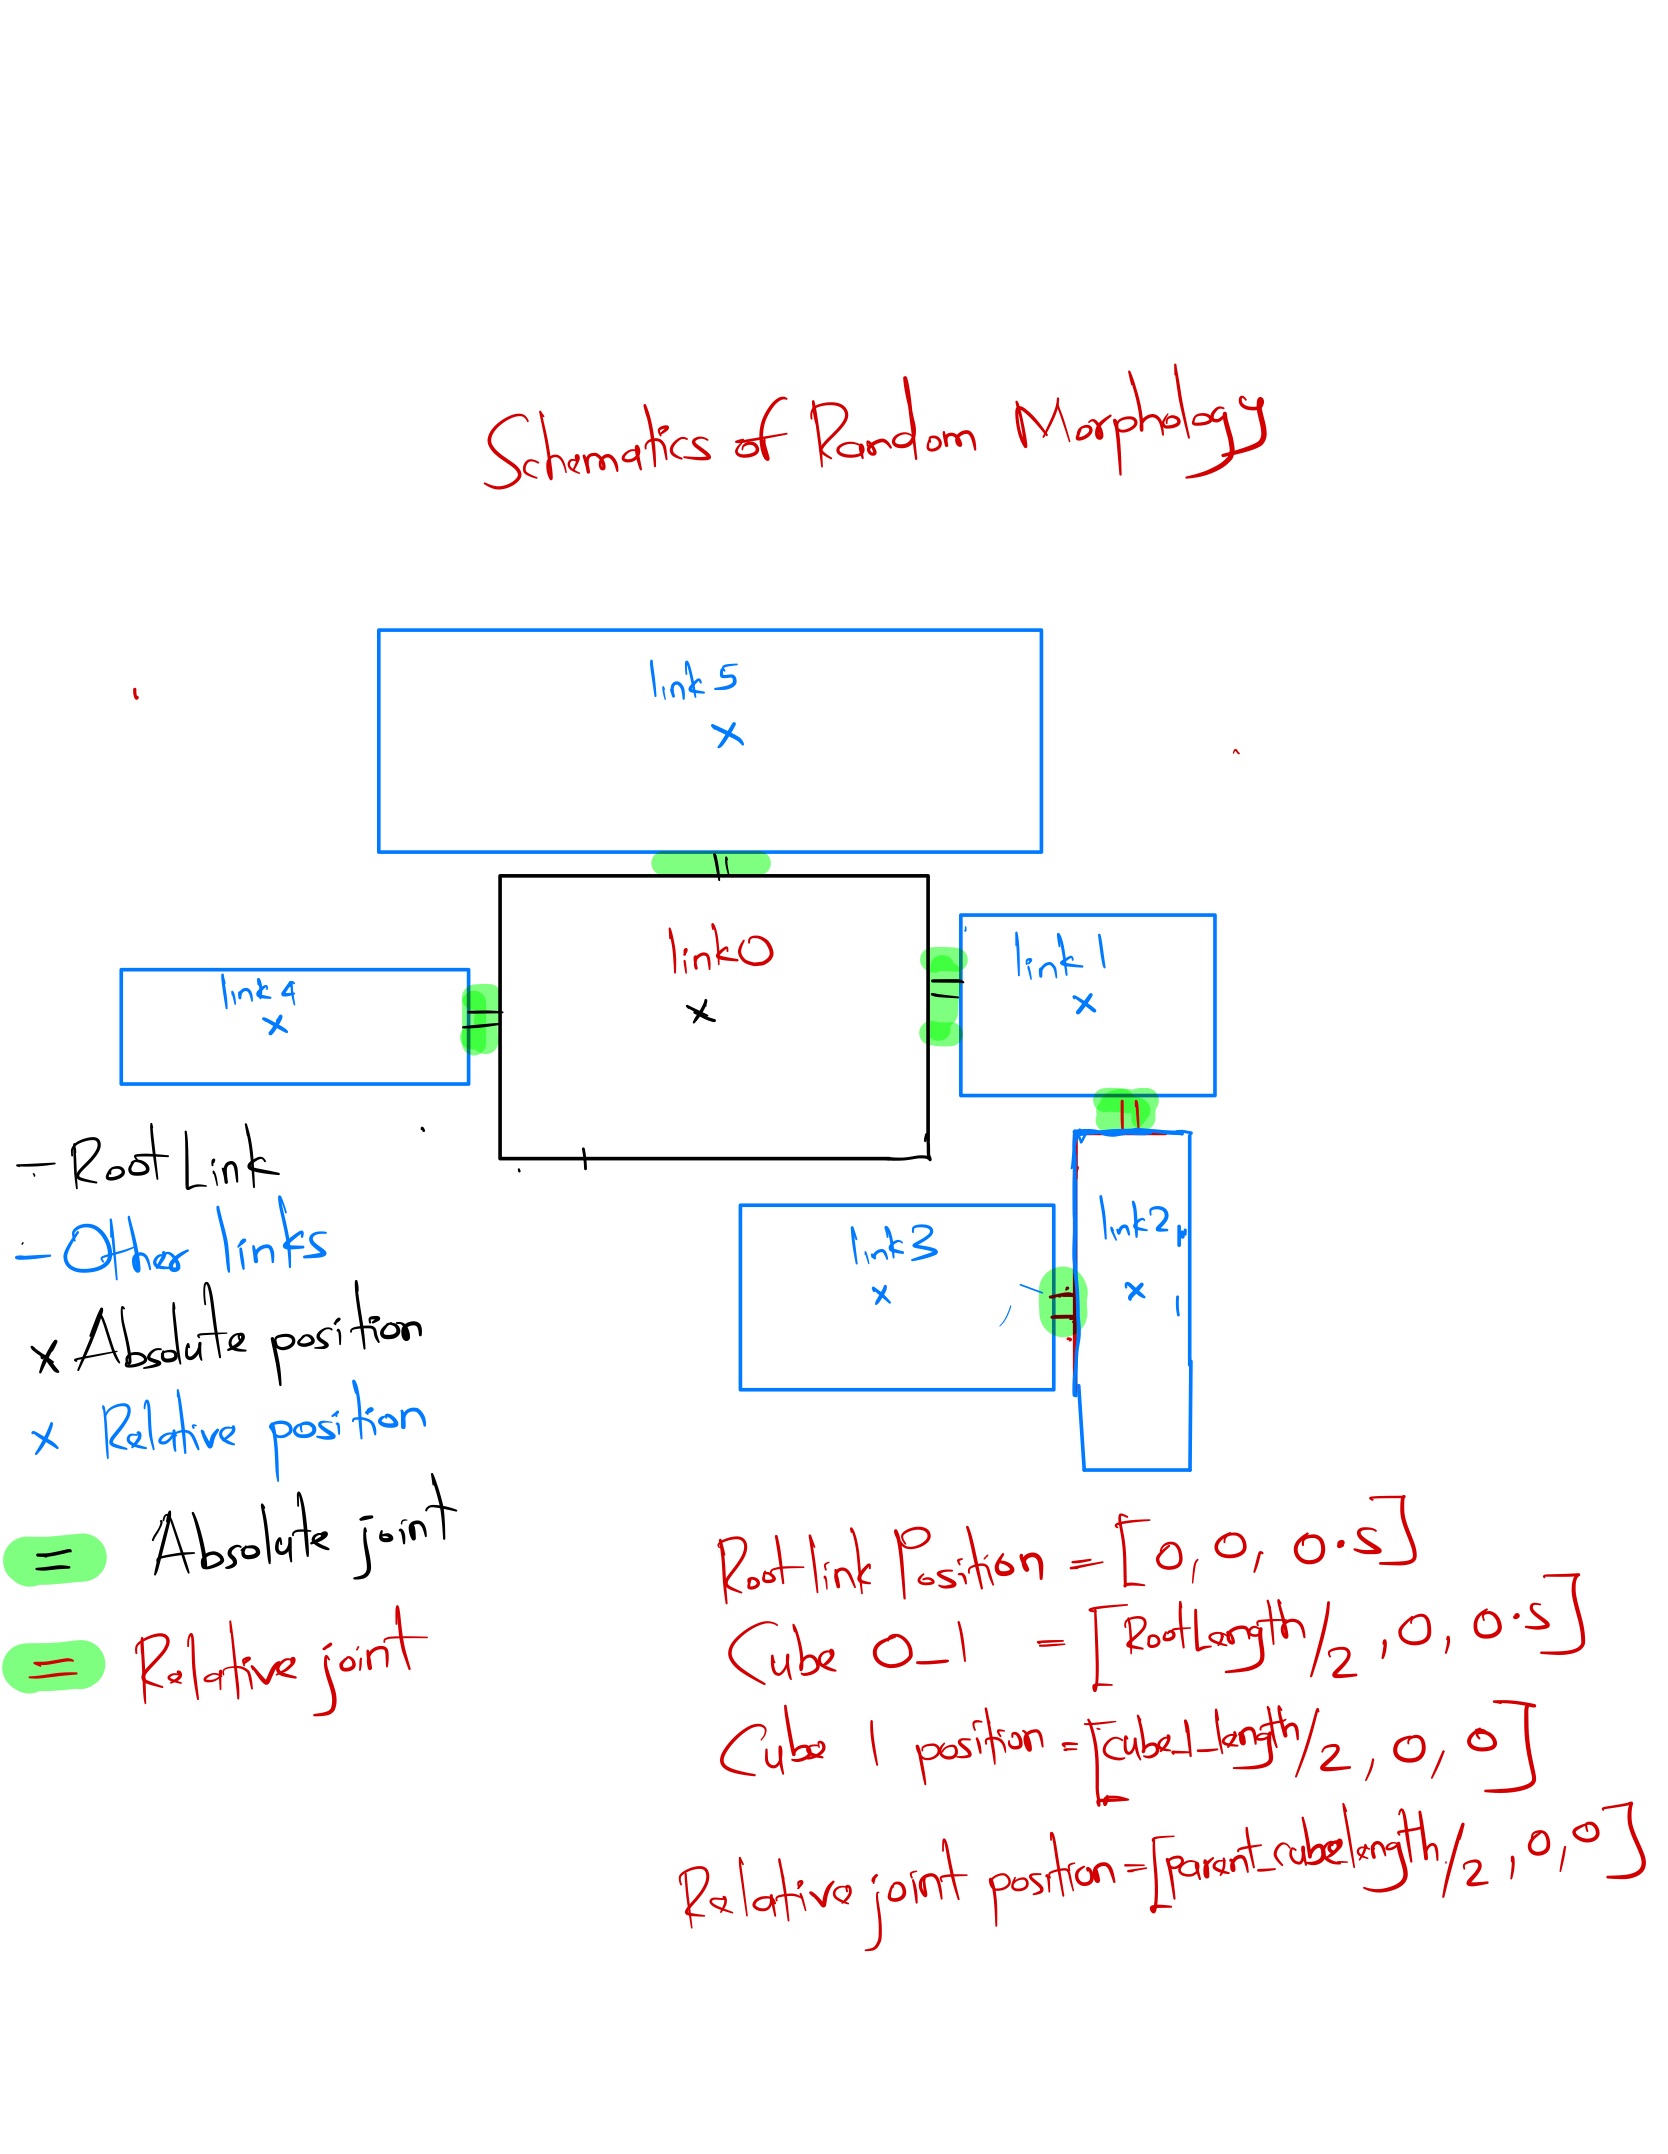 Schematics of Random Morphology
link 5
link 0
link 1
link 4
link 2
link 3
- Root Link
- Other links
x Absolute position
x Relative position
= Absolute joint
= Relative joint
Root link Position = [0, 0, 0.5]
Cube 0_1 = [RootLength/2, 0, 0.5]
Cube 1 position = [cube_1_length/2, 0, 0]
Relative joint position = [parent_cube length/2, 0, 0]